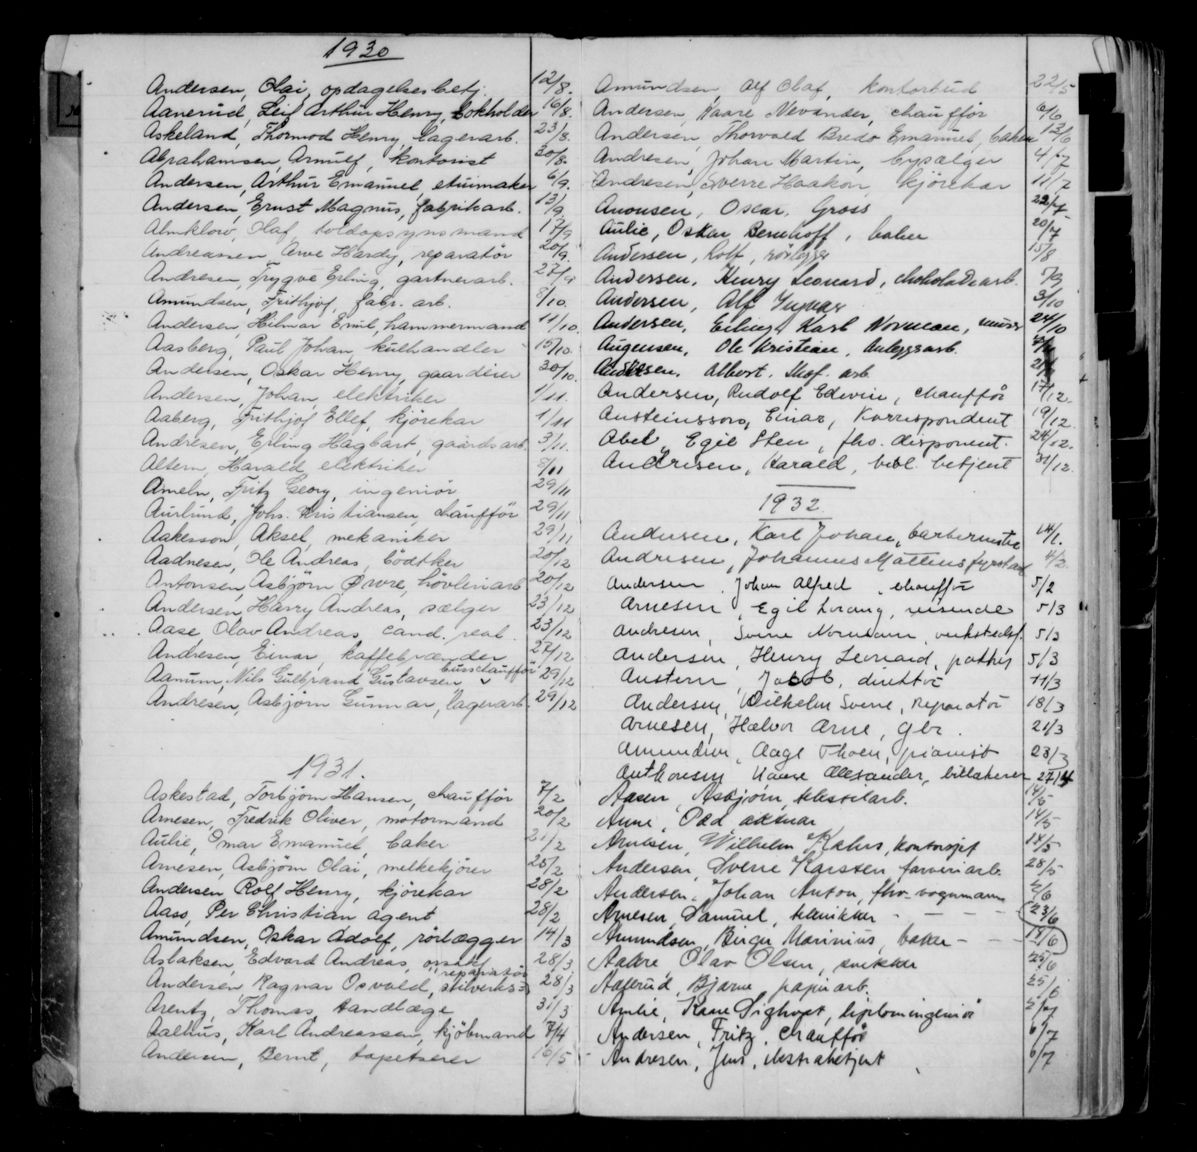 1930
Andersen, Olai, opdagelsesbetj. 12/8.
Aanerud, Leif Arthur Henry, bokholder 16/8.
Askeland, Thormod Henry, lagerarb. 23/8
Abrahamsen, Arnulf, kontorist 30/8.
Andersen, Arthur Emanuel, etuimaker 6/9.
Andersen, Ernst Magnus, fabrikarb. 13/9
Almklov, Olaf, toldopsynsmand 17/9
Andreassen, Arve Hardy, reparatør 20/9.
Andresen, Trygve Erling, gartnerarb. 27/9
Amundsen, Frithjof, fabr. arb. 8/10.
Andersen, Hilmar Emil, hammermand 11/10.
Aasberg, Paul Johan, kulhandler 15/10.
Andersen, Oskar Henry, gaardeier 30/10.
Andersen, Johan elektriker 1/11.
Aaberg, Frithjof Ellef, kjørekar 1/11
Andresen, Erling Hagbart, gaardsarb. 3/11.
Altern, Harald, elektriker 8/11
Ameln, Fritz Georg, ingeniør 29/11
Aurlund, Johs. Kristiansen, chauffør 29/11
Aakesson, Aksel, mekaniker 29/11
Aadnesen, Ole Andreas, bødtker 20/12
Antonsen, Asbjørn Øivre, høvleriarb. 20/12
Andersen, Harry Andreas, sælger 23/12
Aase, Olav Andreas, cand. real. 23/12
Andresen, Einar, kaffebrænder 27/12
Aanum, Nils Gulbrand Gustavsen busschauffør 29/12
Andresen, Asbjørn Gunnar, lagerarb. 29/12
1931.
Askestad, Torbjørn Hansen, chauffør 7/2
Arnesen, Fredrik Oliver, motormand 20/2
Aulie, Omar Emanuel, baker 21/2
Arnesen, Asbjørn Olai, melkekjører 25/2
Andersen Rolf Henry, kjørekar 28/2
Aass, Per Christian agent 28/2
Amundsen, Oskar Adolf, rørlægger 14/3
Aslaksen, Edvard Andreas, 28/3
Andersen Ragnar Osvald, reparatør 28/3
Arentz, Thomas, tandlæge 31/3
Aalhus, Karl Andreassen, kjøbmand 7/4
Andersen, Bernt, tapetserer 16/5
Amundsen, Alf Olaf, kontorbud 22/5
Andersen, Kaare Nevander, chauffør 6/6
Andersen, Thorvald Bredo Emanuel, baker 13/6
Andresen, Johan Martin, bysælger 4/7
Andresen, Sverre Haakon, kjørekar 11/7
Amonsen, Oscar, Gross 22/7
Aulie, Oskar Bernhoff, baker 20/7
Andersen, Rolf, rørlegger 15/8
Andersen, Henry Leonard, chokoladearb. 5/9
Andersen, Alf Yngvar 3/10
Andersen, Erling Karl Norman, 24/10
Augensen, Ole Kristian, Anleggsarb.
Andersen, Albert, Skof. arb.
Andersen, Rudolf Edwin, chauffør 17/12.
Austeinsson, Einar, Korrespondent 19/12.
Abel, Egil Sten, fhv. disponent 24/12.
Andresen, Harald, bud. betjent 31/12.
1932.
Andersen, Karl Johan, barbermester 14/1.
Andresen, Johannes Matteus, 4/2.
Andersen, Johan Alfred, chauffør 5/2
Arnesen, Egil Lorang, reisende 5/3
Andresen, Sverre Normann, verkstedsf. 5/3
Andersen, Henry Leonard, 5/3
Austern, Jacob, direktør 11/3
Andersen, Wilhelm Sverre, Reparatør 18/3
Arnesen, Halvor Arne, gbr. 21/3
Amundsen, Aage Thoen, pianist 23/3
Anthonsen, Hans Alexander, billakerer 27/4
Aasen, Asbjørn, tekstilarb. 14/5
Anne, Odd aktuar 14/5
Arnesen, Wilhelm Kehrs, Kontorsjef 14/5
Andersen, Sverre Karsten, farveriarb. 28/5
Andersen, Johan Anton, fhv. vognmann 2/6
Arnesen, Samuel, tekniker 23/6
Amundsen, Birger Marinius, baker 18/6
Aakre, Olav Olsen, snekker 25/6
Aaserud, Bjarne papirarb. 25/6
Amlie, Kaare Sighvat, diplomingeniør 5/7
Andersen, Fritz, chauffør 6/7
Andresen, Jens, ekstrabetjent 6/7